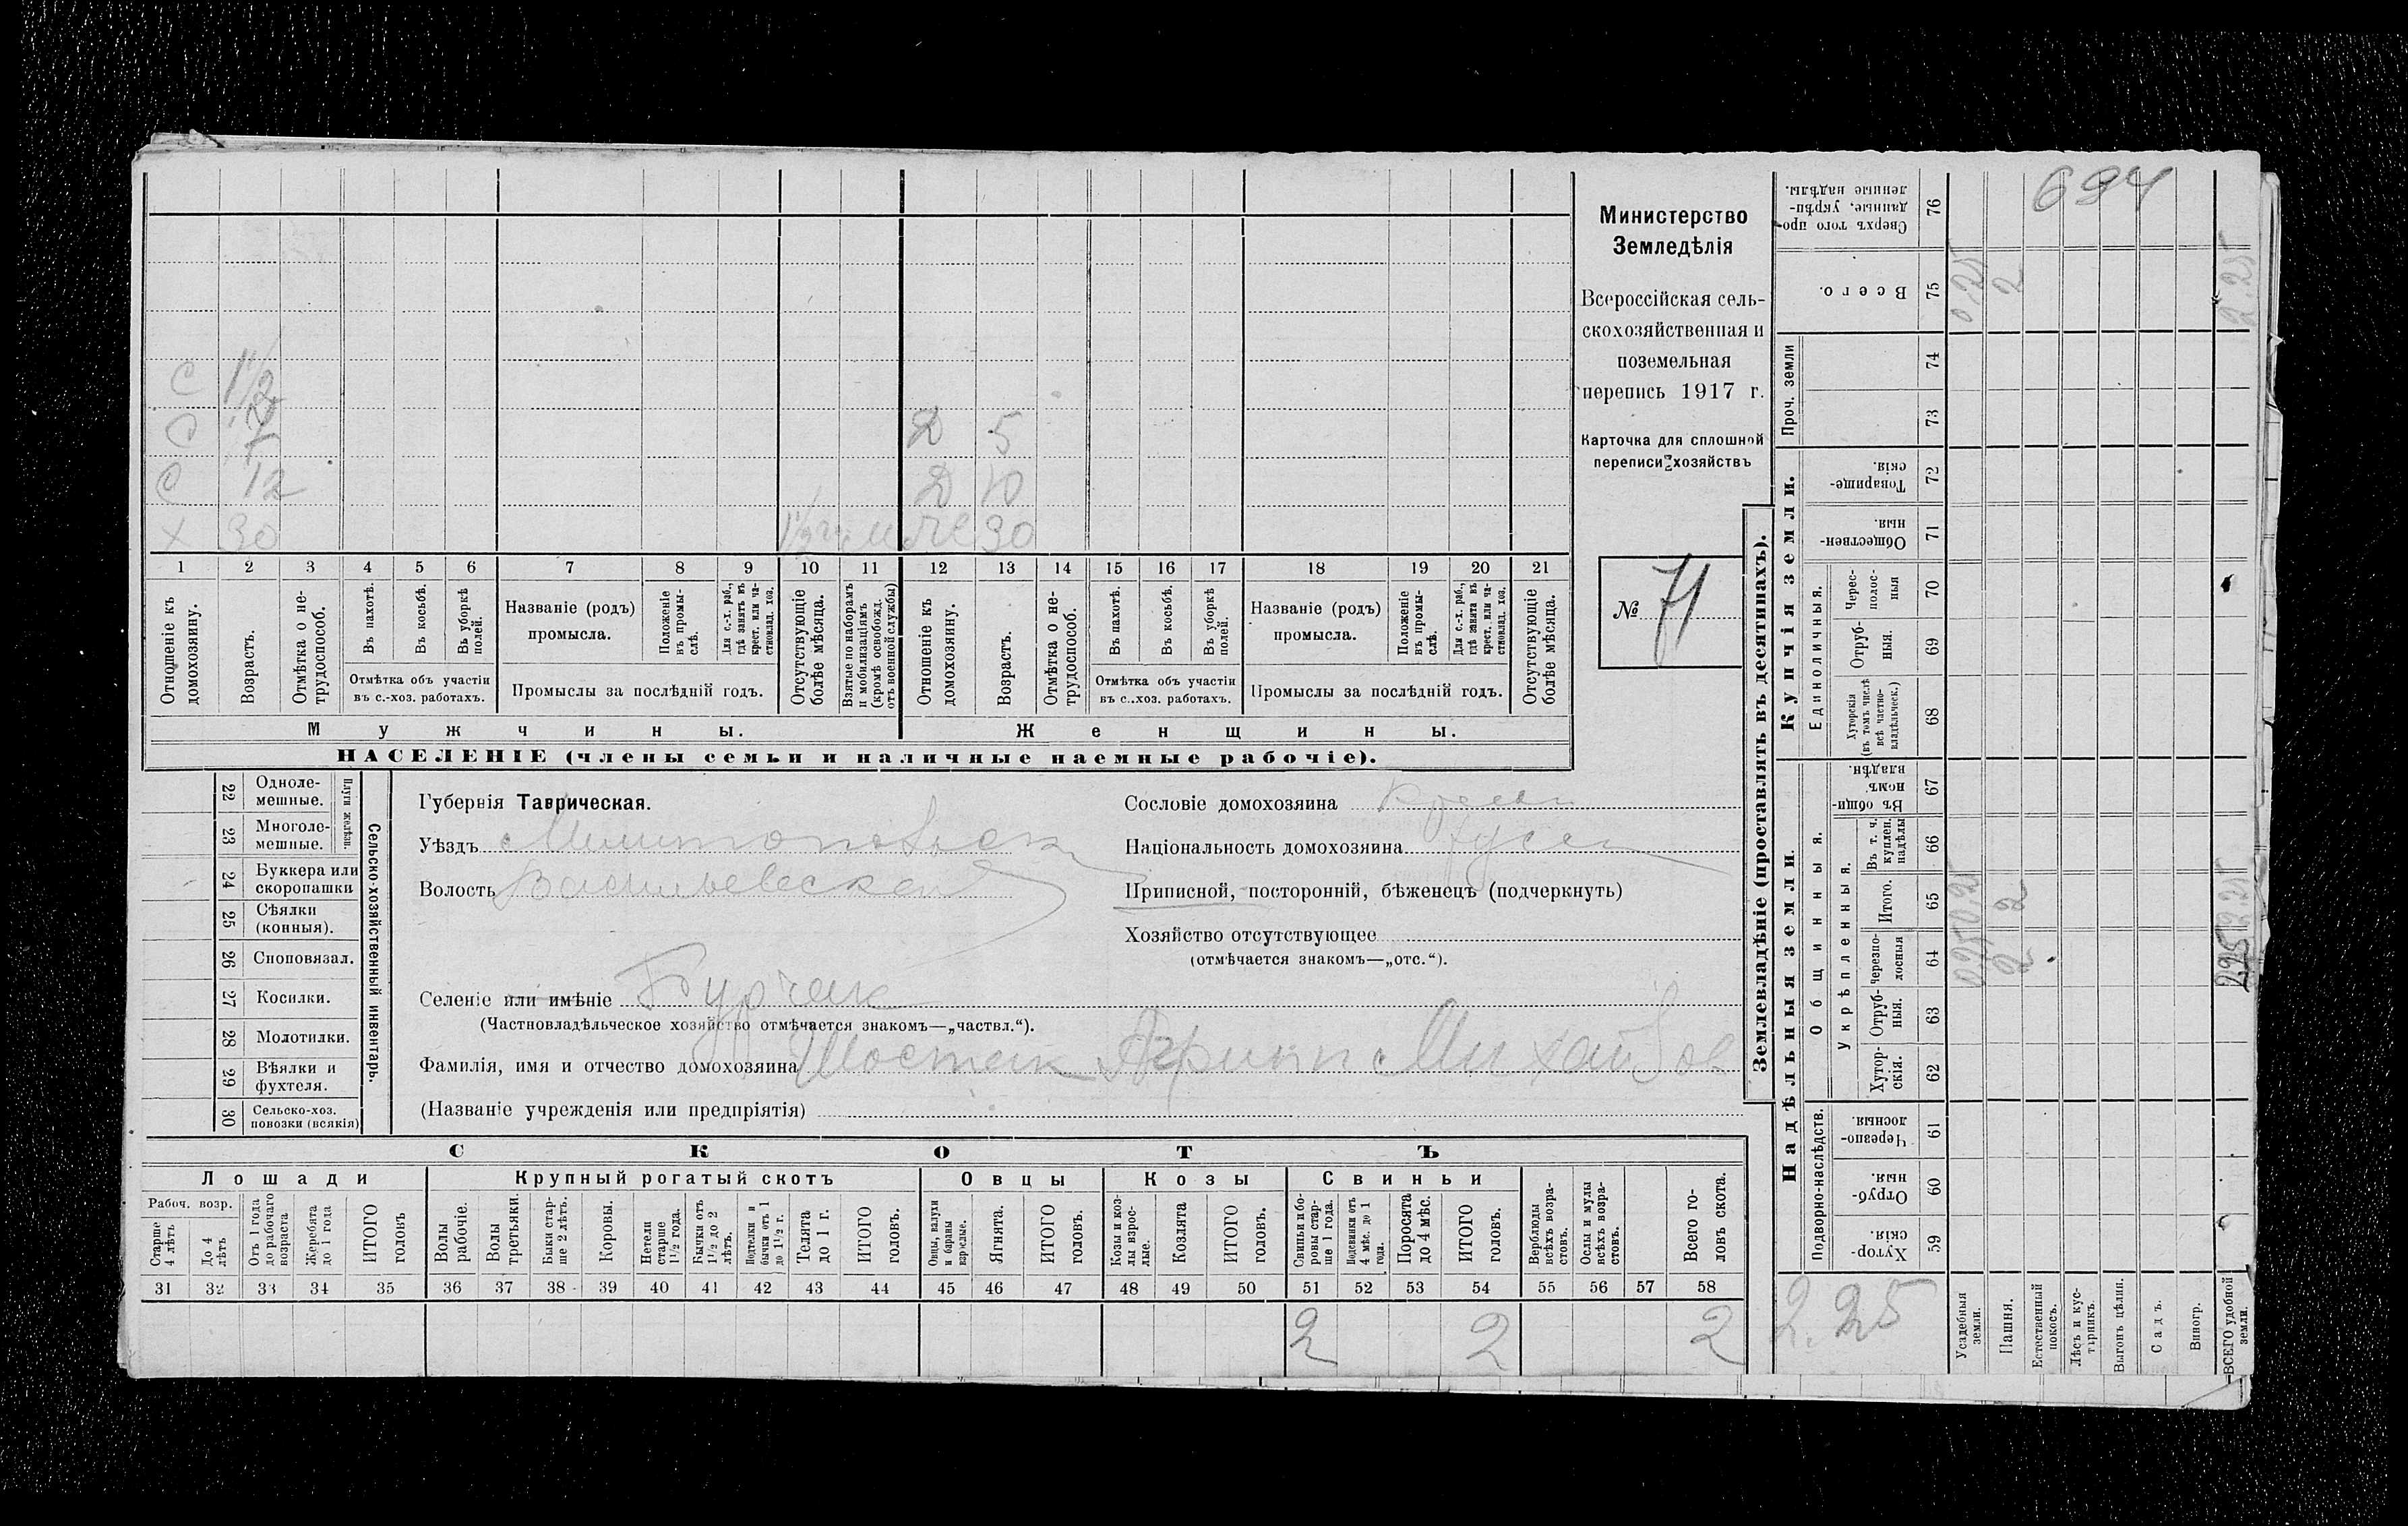 694
Министерство
Земледѣлія
Всероссійская сель-
скохозяйственная и
поземельная
перепись 1917 г.
Карточка для сплошной
переписи хозяйствъ
№ 71
С 1 1/2
С
С 12
Х 30
Д 5
Д 10
30
1 2 3 4 5 6 7 8 9 10 11 12 13 14 15 16 17 18 19 20 21
Отношеніе къ домохозяину.
Возрастъ.
Отмѣтка о не-трудоспособ.
Въ пахотѣ.
Въ косьбѣ.
Въ уборкѣ полей.
Отмѣтка объ участіи
въ с.-хоз. работахъ.
Названіе (родъ)
промысла.
Положеніе въ промы-слѣ.
Для с.-х. раб., гдѣ занятъ въ крест. или ча-стновлад. хоз.
Промыслы за послѣдній годъ.
Отсутствующіе болѣе мѣсяца.
Взятые по наборамъ и мобилизаціямъ (кромѣ освобожд. отъ военной службы)
Отношеніе къ домохозяину.
Возрастъ.
Отмѣтка о не-трудоспособ.
Въ пахотѣ.
Въ косьбѣ.
Въ уборкѣ полей.
Отмѣтка объ участіи
въ с..хоз. работахъ.
Названіе (родъ)
промысла.
Положеніе въ промы-слѣ.
Для с.-х. раб., гдѣ занята въ крест. или ча-стновлад. хоз.
Промыслы за послѣдній годъ.
Отсутствующіе болѣе мѣсяца.
Мужчины.
Женщины.
НАСЕЛЕНІЕ (члены семьи и наличные наемные рабочіе).
22 Одноле-мешные.
23 Многоле-мешные.
Плуги желѣзн.
24 Буккера или скоропашки
25 Сѣялки (конныя).
26 Сноповязал.
27 Косилки.
28 Молотилки.
29 Вѣялки и фухтеля.
30 Сельско-хоз. повозки (всякія)
Сельско-хозяйственный инвентарь.
Губернія Таврическая.
Уѣздъ Мелитопольск
Волость Васильевская
Селеніе или имѣніе Бурчак
(Частновладѣльческое хозяйство отмѣчается знакомъ—„частвл.“).
Фамилія, имя и отчество домохозяина Шостак Агрипп Михайлов
(Названіе учрежденія или предпріятія)
Сословіе домохозяина Крест
Національность домохозяина Русск
Приписной, посторонній, бѣженецъ (подчеркнуть)
Хозяйство отсутствующее
(отмѣчается знакомъ—„отс.“).
СКОТЪ
Лошади
Крупный рогатый скотъ
Овцы
Козы
Свиньи
Рабоч. возр.
Старше 4 лѣтъ
До 4 лѣтъ
Отъ 1 года до рабочаго возраста
Жеребята до 1 года
ИТОГО головъ
Волы рабочіе.
Волы третьяки.
Быки стар-ше 2 лѣтъ.
Коровы.
Нетели старше 1 1/2 года.
Бычки отъ 1 1/2 до 2 лѣтъ.
Подтелки и бычки отъ 1 до 1 1/2 г.
Телята до 1 г.
ИТОГО головъ.
Овцы, валухи и бараны взрослые.
Ягнята.
ИТОГО головъ.
Козы и коз-лы взрос-лые.
Козлята
ИТОГО головъ.
Свиньи и бо-ровы стар-ше 1 года.
Подсвинки отъ 4 мѣс. до 1 года.
Поросята до 4 мѣс.
ИТОГО головъ.
Верблюды всѣхъ возра-стовъ.
Ослы и мулы всѣхъ возра-стовъ.
Всего го-ловъ скота.
31 32 33 34 35 36 37 38 39 40 41 42 43 44 45 46 47 48 49 50 51 52 53 54 55 56 57 58
2 2 2
Землевладѣніе (проставлять въ десятинахъ).
Купчія земли.
Надѣльныя земли.
Сверхъ того про-данные, укрѣп-ленные надѣлы. 76
Всего. 75
0.25
2
2.25
Проч. земли
74
73
Товарище-скія. 72
Обществен-ныя. 71
Единоличныя.
Черес-полос-ныя 70
Отруб-ныя. 69
Хуторскія (въ томъ числѣ всѣ частно-владѣльческ.) 68
Въ общи-номъ. владѣн. 67
Общинныя.
Укрѣпленныя.
Въ т. ч. куплен. надѣлы 66
Итого. 65
Черезпо-лосныя 64
Отруб-ныя. 63
Хутор-скія. 62
Подворно-наслѣдств.
Черезпо-лосныя. 61
Отруб-ныя. 60
Хутор-скія. 59
2.25
Усадебныя земли.
Пашня.
Естественный покосъ.
Лѣсъ и кус-тарникъ.
Выгонъ цѣлин.
Садъ.
Виногр.
ВСЕГО удобной земли.